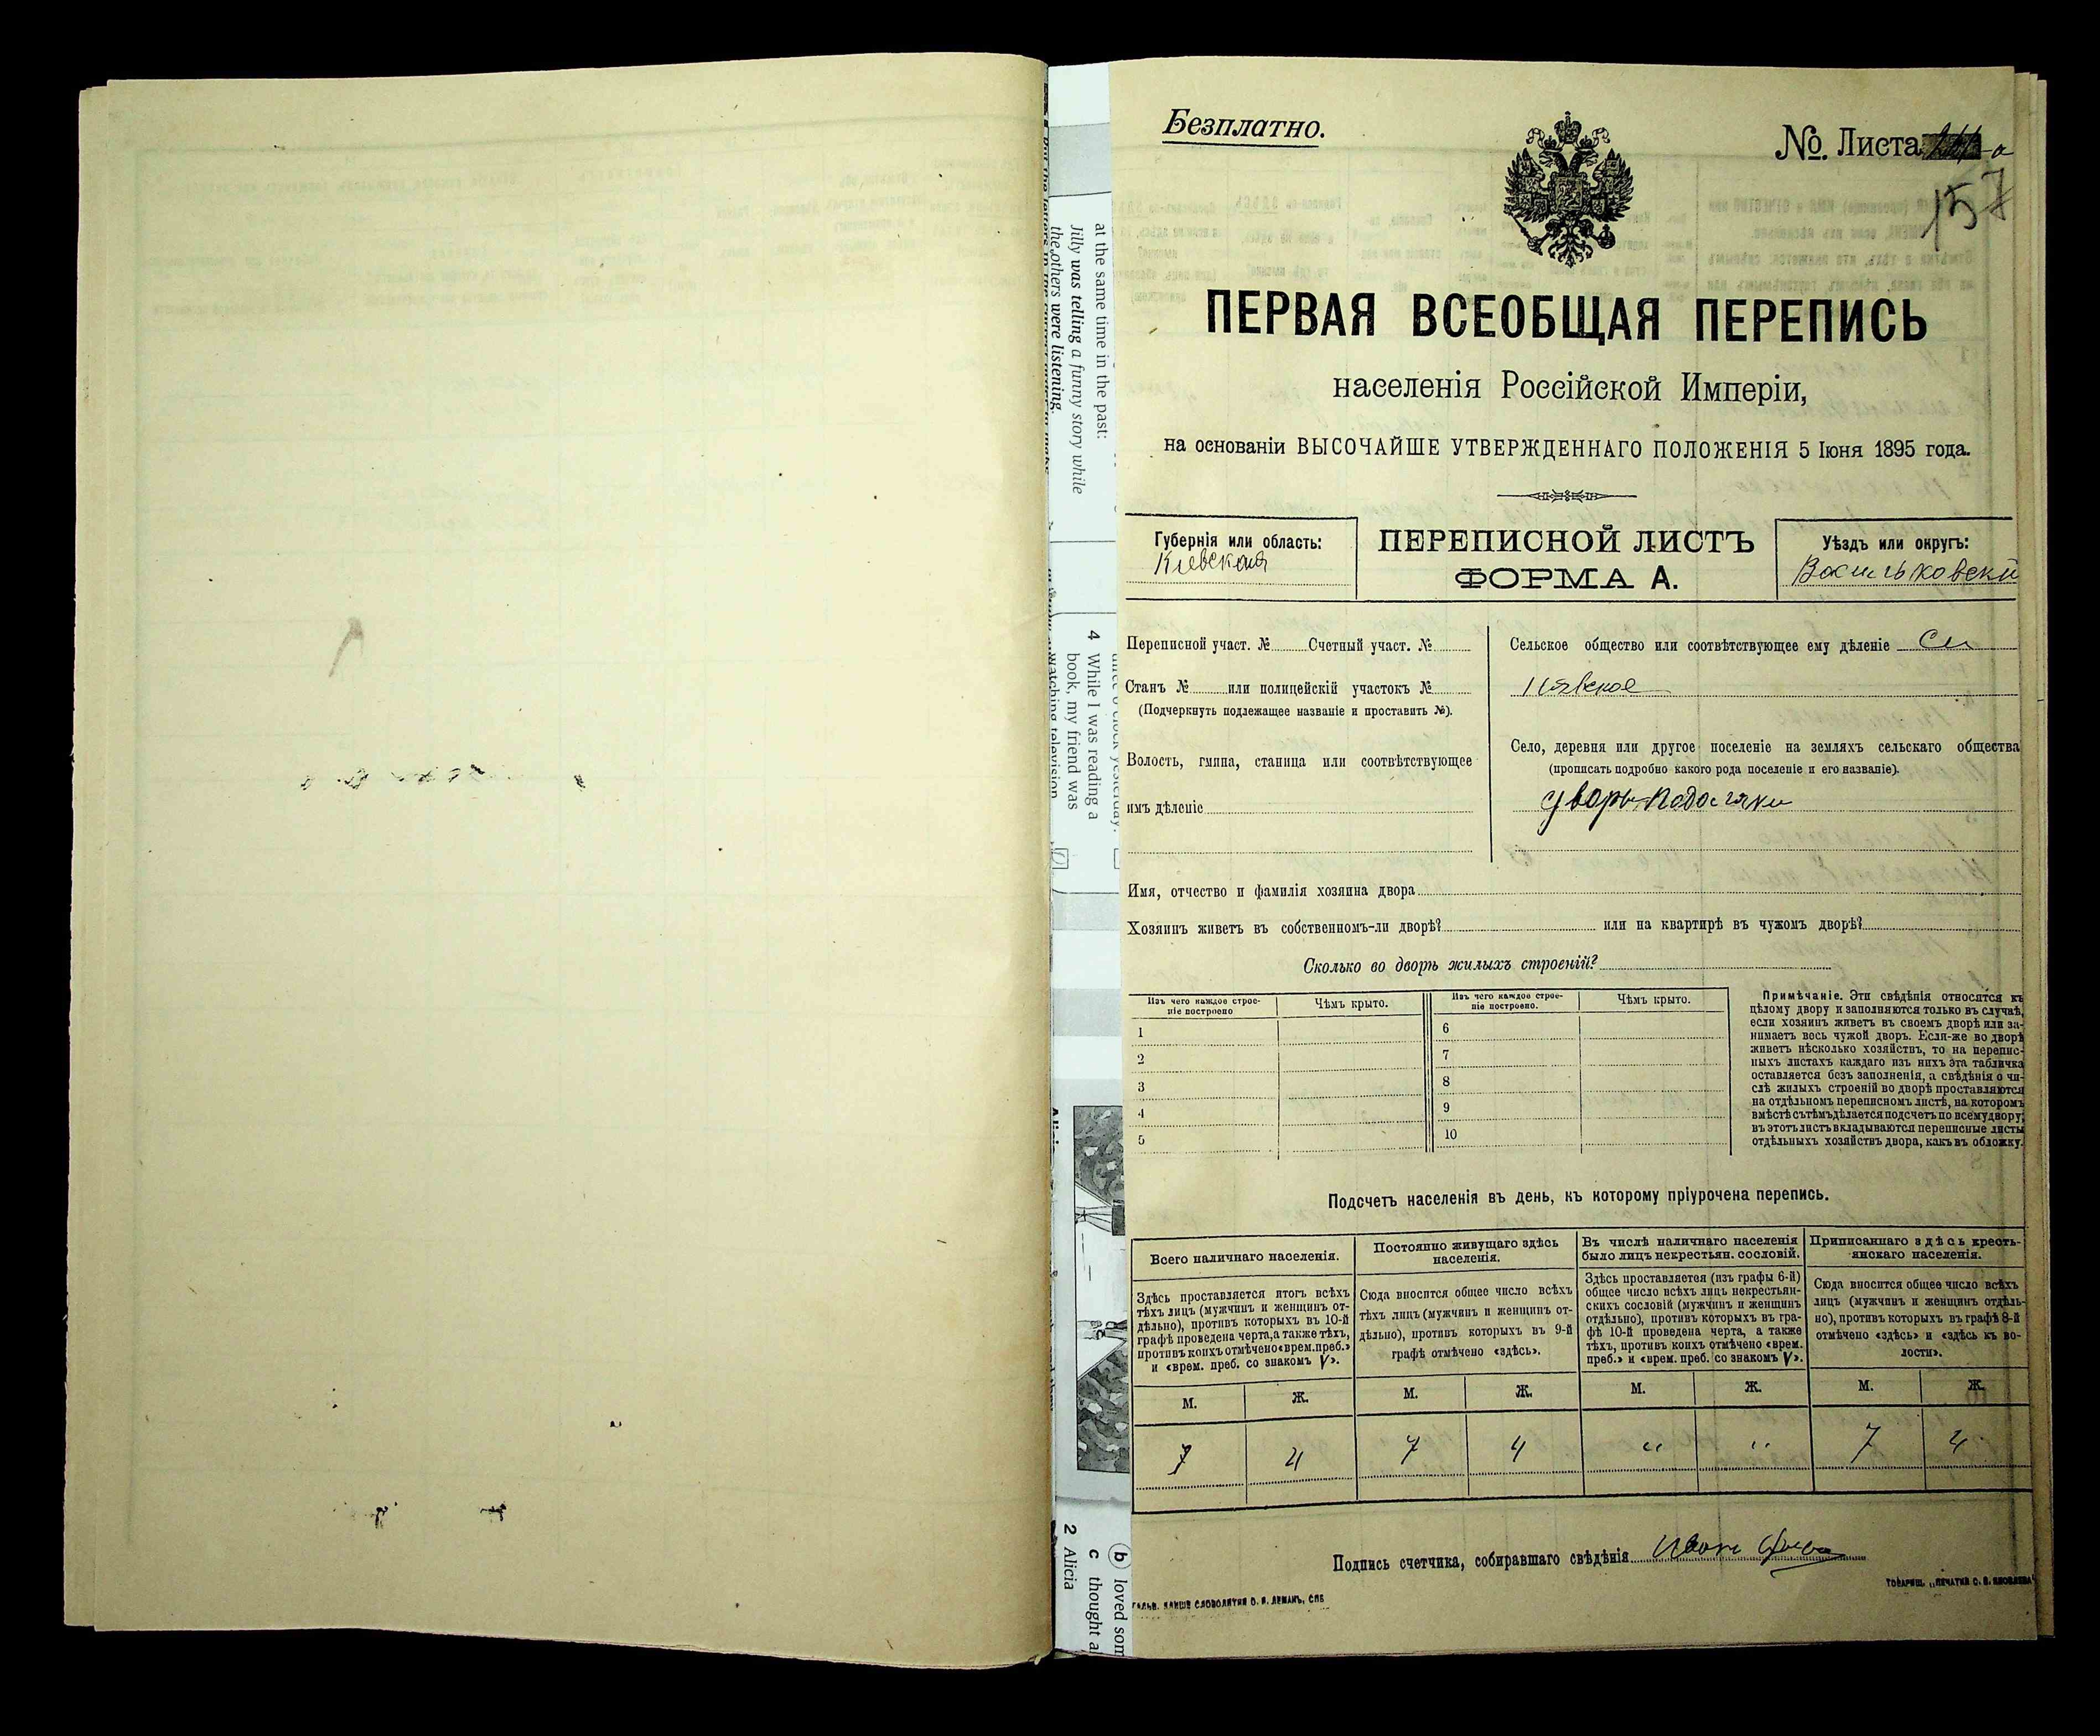 at the same time in the past:
Jilly was telling a funny story while
the others were listening.
4 While I was reading a
book, my friend was
watching television
b loved som
c thought a
2 Alicia
Безплатно.
№. Листа
157
ПЕРВАЯ ВСЕОБЩАЯ ПЕРЕПИСЬ
населенія Россійской Имперіи,
на основаніи ВЫСОЧАЙШЕ УТВЕРЖДЕННАГО ПОЛОЖЕНІЯ 5 Іюня 1895 года.
Губернія или область:
Кіевская
ПЕРЕПИСНОЙ ЛИСТЪ
ФОРМА А.
Уѣздъ или округъ:
Васильковскій
Переписной участ. № Счетный участ. №
Станъ № или полицейскій участокъ №
(Подчеркнуть подлежащее названіе и проставить №).
Волость, гмина, станица или соотвѣтствующее
имъ дѣленіе
Сельское общество или соотвѣтствующее ему дѣленіе
Село, деревня или другое поселеніе на земляхъ сельскаго общества
(прописать подробно какого рода поселеніе и его названіе).
Имя, отчество и фамилія хозяина двора
Хозяинъ живетъ въ собственномъ-ли дворѣ? или на квартирѣ въ чужомъ дворѣ?
Сколько во дворѣ жилыхъ строеній?
Изъ чего каждое строе-
ніе построено
Чѣмъ крыто.
Изъ чего каждое строе-
ніе построено.
Чѣмъ крыто.
1 6
2 7
3 8
4 9
5 10
Примѣчаніе. Эти свѣдѣнія относятся къ
цѣлому двору и заполняются только въ случаѣ,
если хозяинъ живетъ въ своемъ дворѣ или за-
нимаетъ весь чужой дворъ. Если-же во дворѣ
живетъ нѣсколько хозяйствъ, то на перепис-
ныхъ листахъ каждаго изъ нихъ эта табличка
оставляется безъ заполненія, а свѣдѣнія о чи-
слѣ жилыхъ строеній во дворѣ проставляются
на отдѣльномъ переписномъ листѣ, на которомъ
вмѣстѣ съ тѣмъ дѣлается подсчетъ по всему двору;
въ этотъ листъ вкладываются переписные листы
отдѣльныхъ хозяйствъ двора, какъ въ обложку.
Подсчетъ населенія въ день, къ которому пріурочена перепись.
Всего наличнаго населенія.
Здѣсь проставляется итогъ всѣхъ
тѣхъ лицъ (мужчинъ и женщинъ от-
дѣльно), противъ которыхъ въ 10-й
графѣ проведена черта, а также тѣхъ,
противъ коихъ отмѣчено «врем. преб.»
и «врем. преб. со знакомъ V».
Постоянно живущаго здѣсь
населенія.
Сюда вносится общее число всѣхъ
тѣхъ лицъ (мужчинъ и женщинъ от-
дѣльно), противъ которыхъ въ 9-й
графѣ отмѣчено «здѣсь».
Въ числѣ наличнаго населенія
было лицъ некрестьян. сословій.
Здѣсь проставляется (изъ графы 6-й)
общее число всѣхъ лицъ некрестьян-
скихъ сословій (мужчинъ и женщинъ
отдѣльно), противъ которыхъ въ гра-
фѣ 10-й проведена черта, а также
тѣхъ, противъ коихъ отмѣчено «врем.
преб.» и «врем. преб. со знакомъ V».
Приписаннаго здѣсь кресть-
янскаго населенія.
Сюда вносится общее число всѣхъ
лицъ (мужчинъ и женщинъ отдѣль-
но), противъ которыхъ въ графѣ 8-й
отмѣчено «здѣсь» и «здѣсь къ во-
лости».
М. Ж. М. Ж. М. Ж. М. Ж.
7 4 7 4 " " 7 4
Подпись счетчика, собиравшаго свѣдѣнія Иванъ
ТОВАРИЩ. „ПЕЧАТНЯ С. П. ЯКОВЛЕВА"